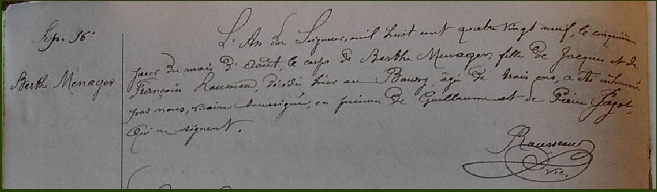 Sep. 36
L'An du Seigneur, mil huit cent quatre vingt neuf, le cinquième
jour du mois d'Août le corps de Berthe Menager, fille de Jacques et de
Berthe Menager
François Rousseau, décédé hier au Bourg, âgé de trois jours, a été inhumé
par nous, vicaire soussigné, en présence de Guillaume et de Pierre
qui ne signent.
Rousseau
Vic.